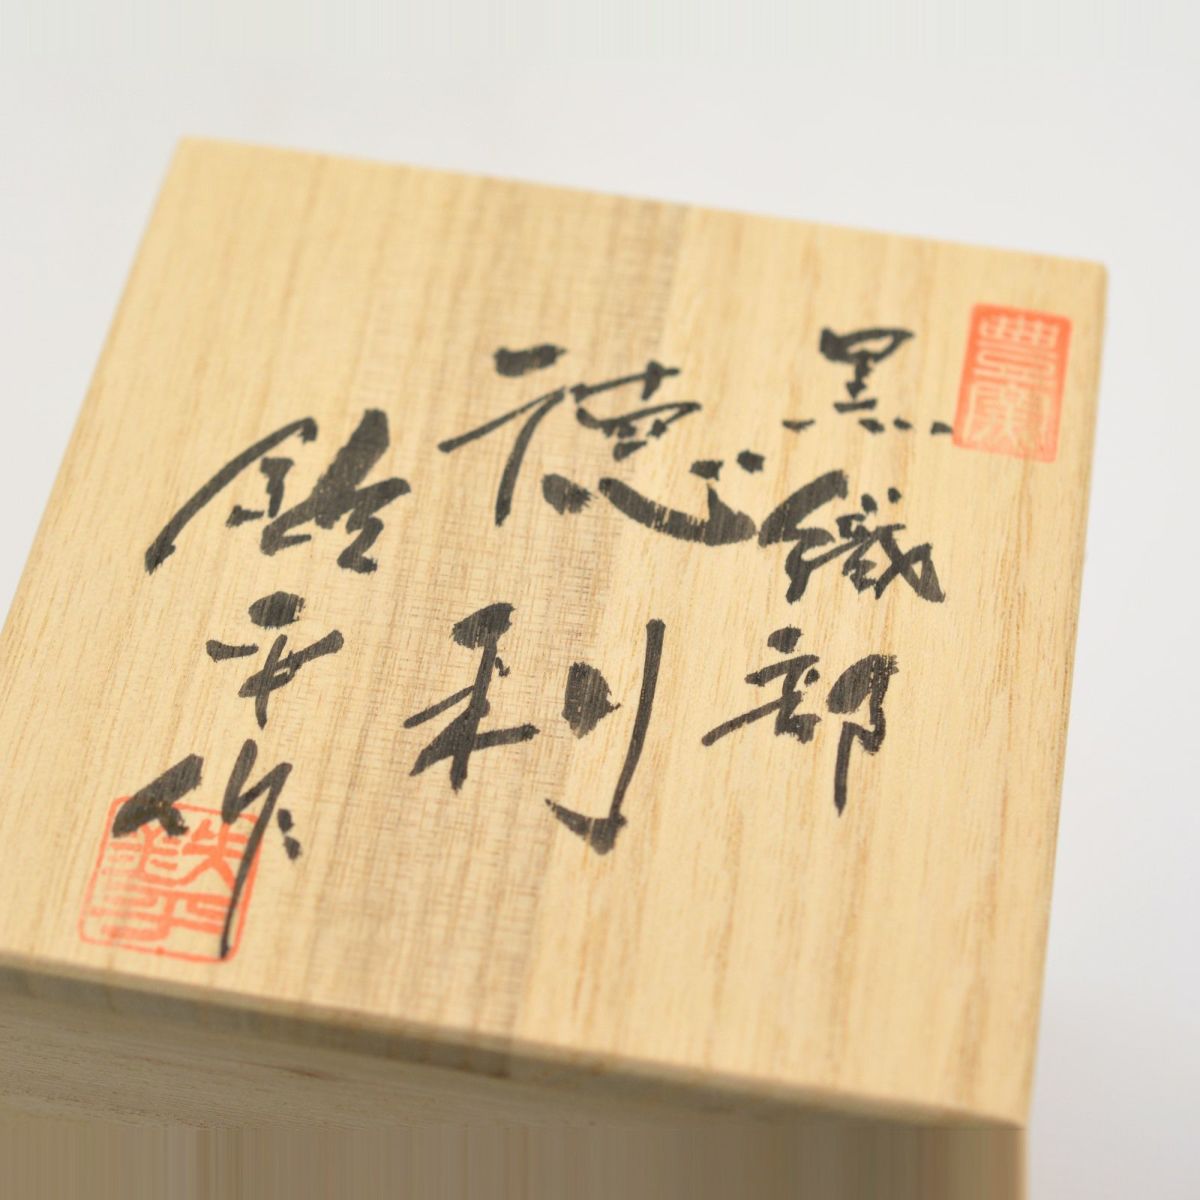 豊窯
黒織部
徳利
鉄平作
鉄平